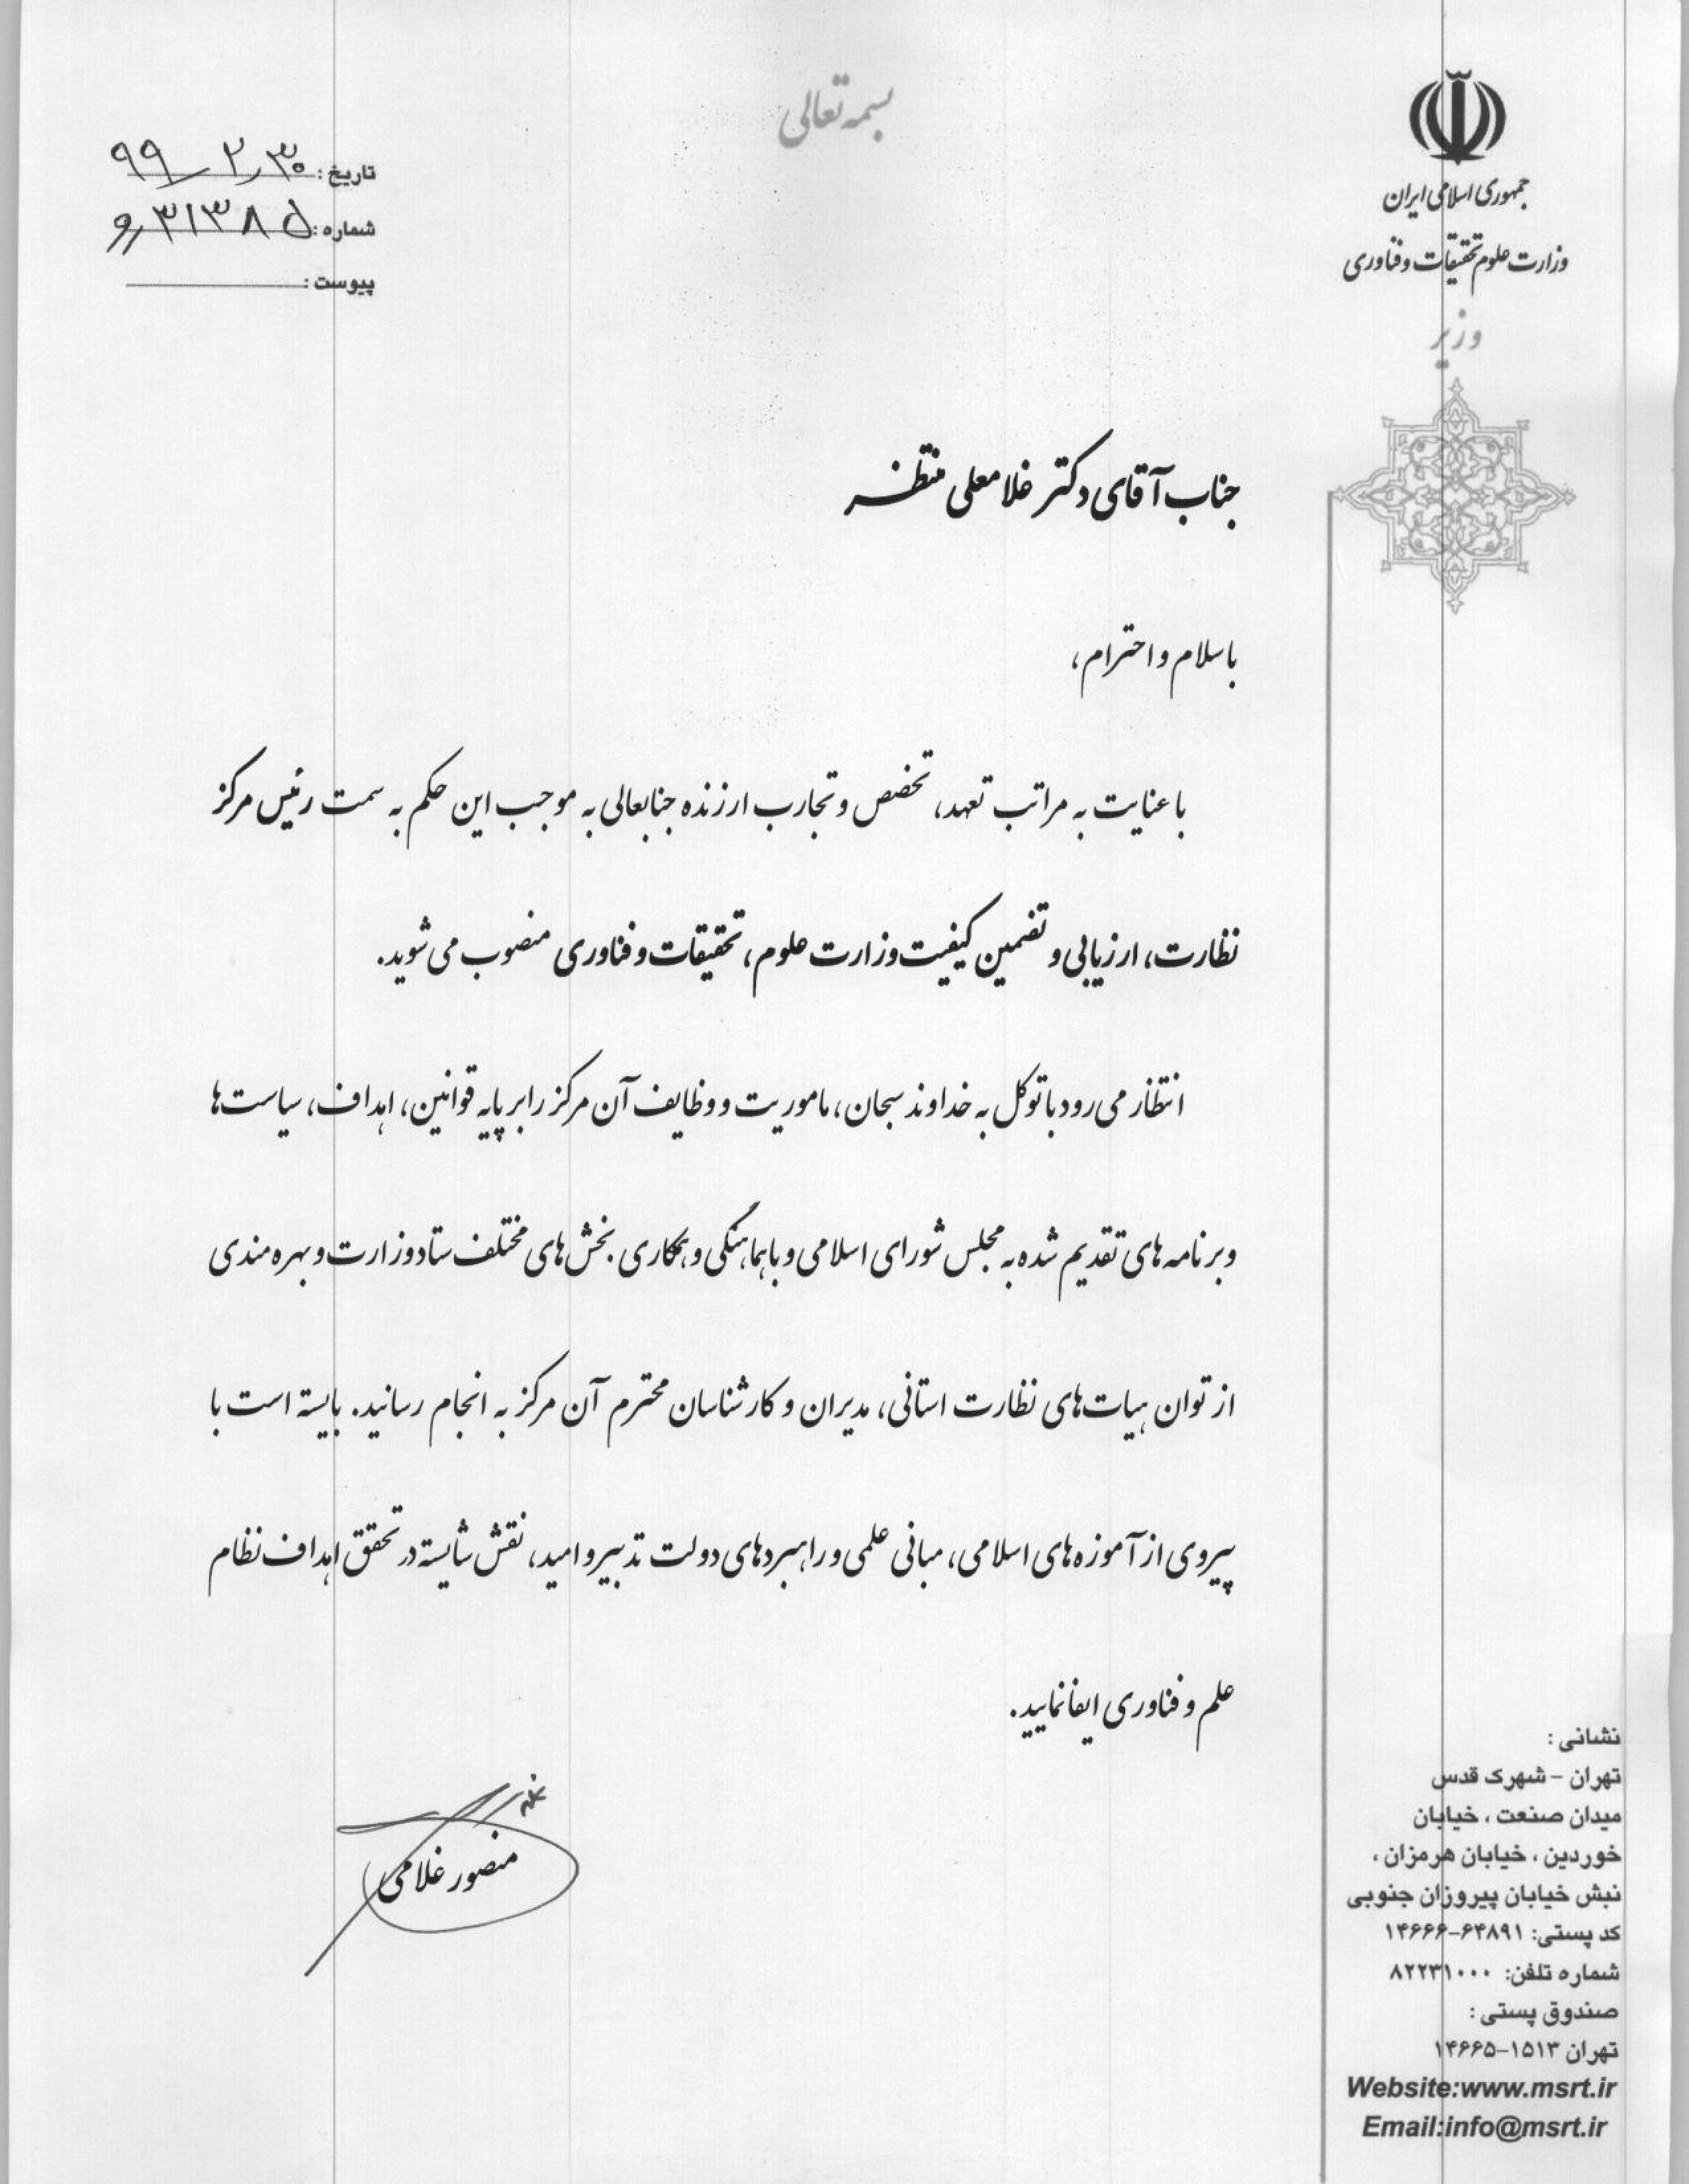 بسمه تعالی
جمهوری اسلامی ایران
وزارت علوم تحقیقات و فناوری
وزیر
تاریخ: ۹۹/۲/۳۰
شماره: ۳۱۳۸۵/و
پیوست:
جناب آقای دکتر غلامعلی منتظر
با سلام و احترام،
با عنایت به مراتب تعهد، تخصص و تجارب ارزنده جنابعالی به موجب این حکم به سمت رئیس مرکز
نظارت، ارزیابی و تضمین کیفیت وزارت علوم، تحقیقات و فناوری منصوب می شوید.
انتظار می رود با توکل به خداوند سبحان، ماموریت و وظایف آن مرکز را بر پایه قوانین، اهداف، سیاست ها
و برنامه های تقدیم شده به مجلس شورای اسلامی و با هماهنگی و همکاری بخش های مختلف ستاد وزارت و بهره مندی
از توان هیات های نظارت استانی، مدیران و کارشناسان محترم آن مرکز به انجام رسانید. بایسته است با
پیروی از آموزه های اسلامی، مبانی علمی و راهبردهای دولت تدبیر و امید، نقش شایسته در تحقق اهداف نظام
علم و فناوری ایفا نمایید.
منصور غلامی
نشانی :
تهران - شهرک قدس
میدان صنعت ، خیابان
خوردین ، خیابان هرمزان ،
نبش خیابان پیروزان جنوبی
کد پستی: ۱۴۶۶۶-۶۴۸۹۱
شماره تلفن: ۸۲۲۳۱۰۰۰
صندوق پستی :
تهران ۱۵۱۳-۱۴۶۶۵
Website:www.msrt.ir
Email:info@msrt.ir